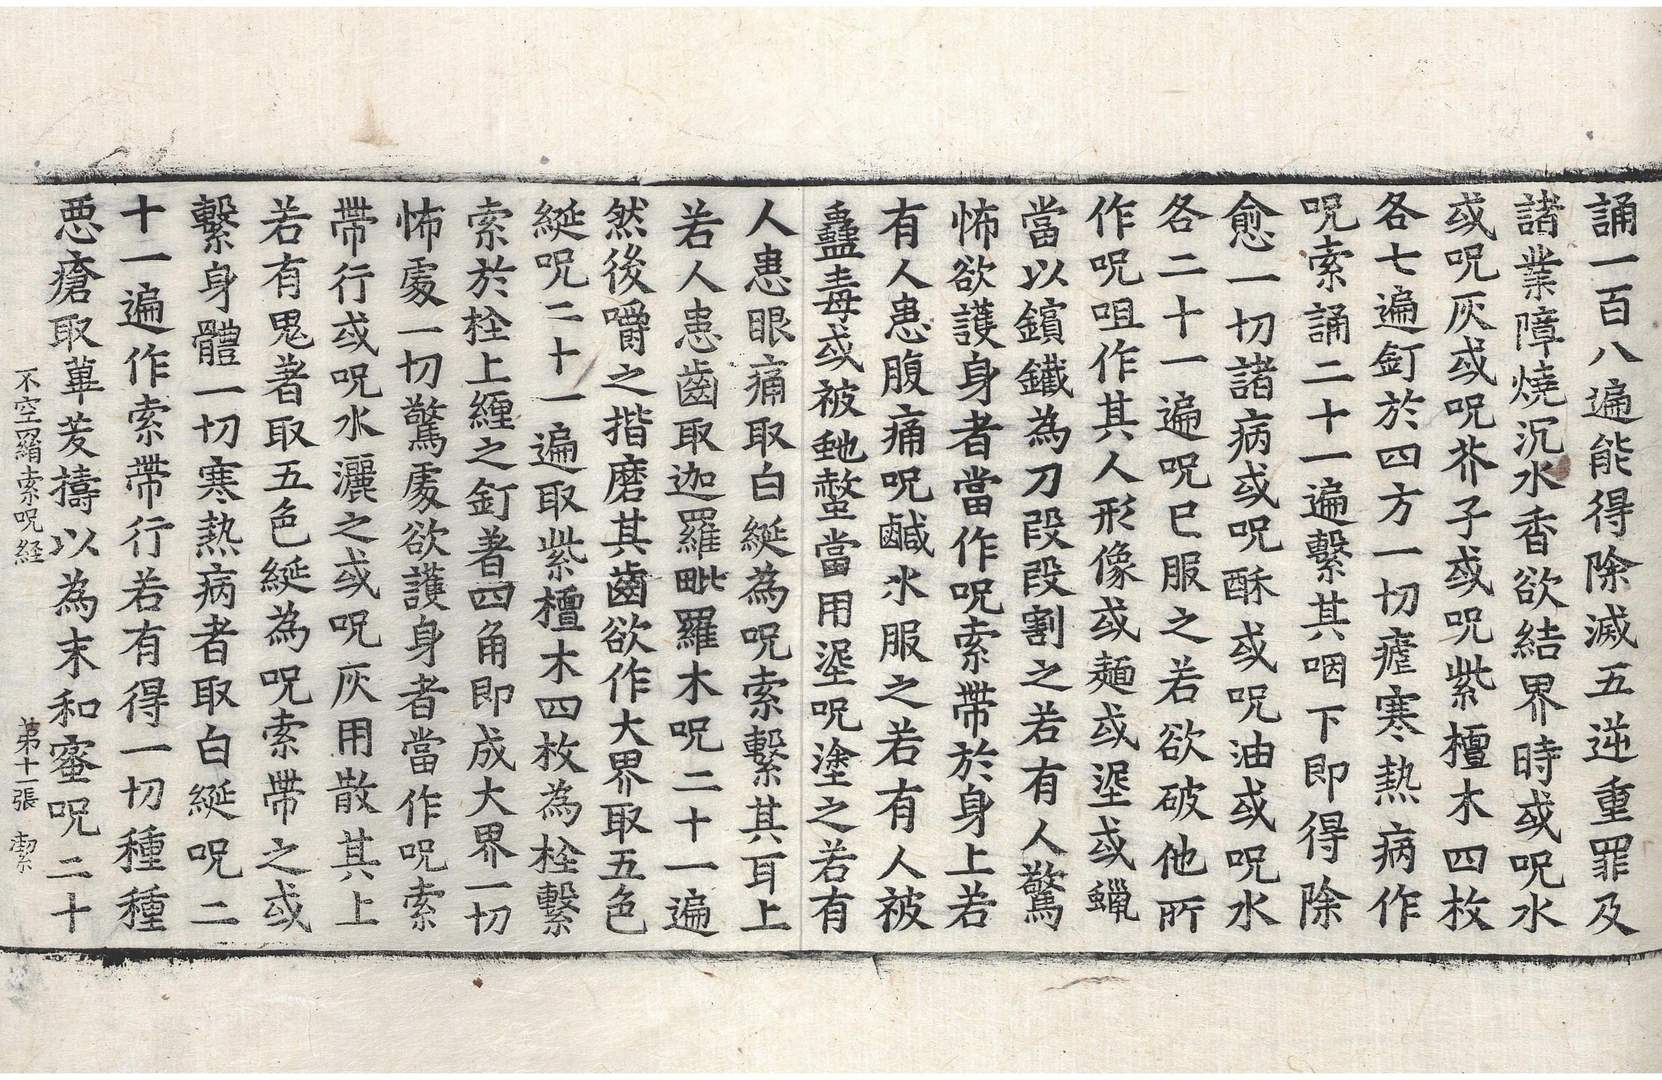 誦一百八遍能得除滅五逆重罪及
諸業障燒沉水香欲結界時或呪水
或呪灰或呪芥子或呪紫檀木四枚
各七遍釘於四方一切瘧寒熱病作
呪索誦二十一遍繫其咽下即得除
愈一切諸病或呪酥或呪油或呪水
各二十一遍呪已服之若欲破他所
作呪咀作其人形像或麺或埿或蠟
當以鑌鐵為刀段段割之若有人驚
怖欲護身者當作呪索帶於身上若
有人患腹痛呪鹹水服之若有人被
蠱毒或被虵螫當用埿呪塗之若有
人患眼痛取白綖為呪索繫其耳上
若人患齒取迦羅毗羅木呪二十一遍
然後嚼之揩磨其齒欲作大界取五色
綖呪二十一遍取紫檀木四枚為栓繫
索於栓上纏之釘著四角即成大界一切
怖處一切驚處欲護身者當作呪索
帶行或呪水灑之或呪灰用散其上
若有鬼著取五色綖為呪索帶之或
繫身體一切寒熱病者取白綖呪二
十一遍作索帶行若有得一切種種
惡瘡取蓽茇擣以為末和蜜呪二十
不空羂索呪経　第十一張　潔